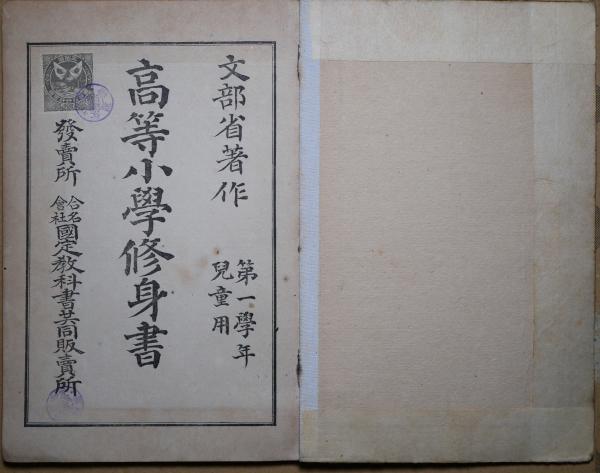 文部省著作
第一學年
兒童用
高等小學修身書
發賣所 合名會社國定敎科書共同販賣所